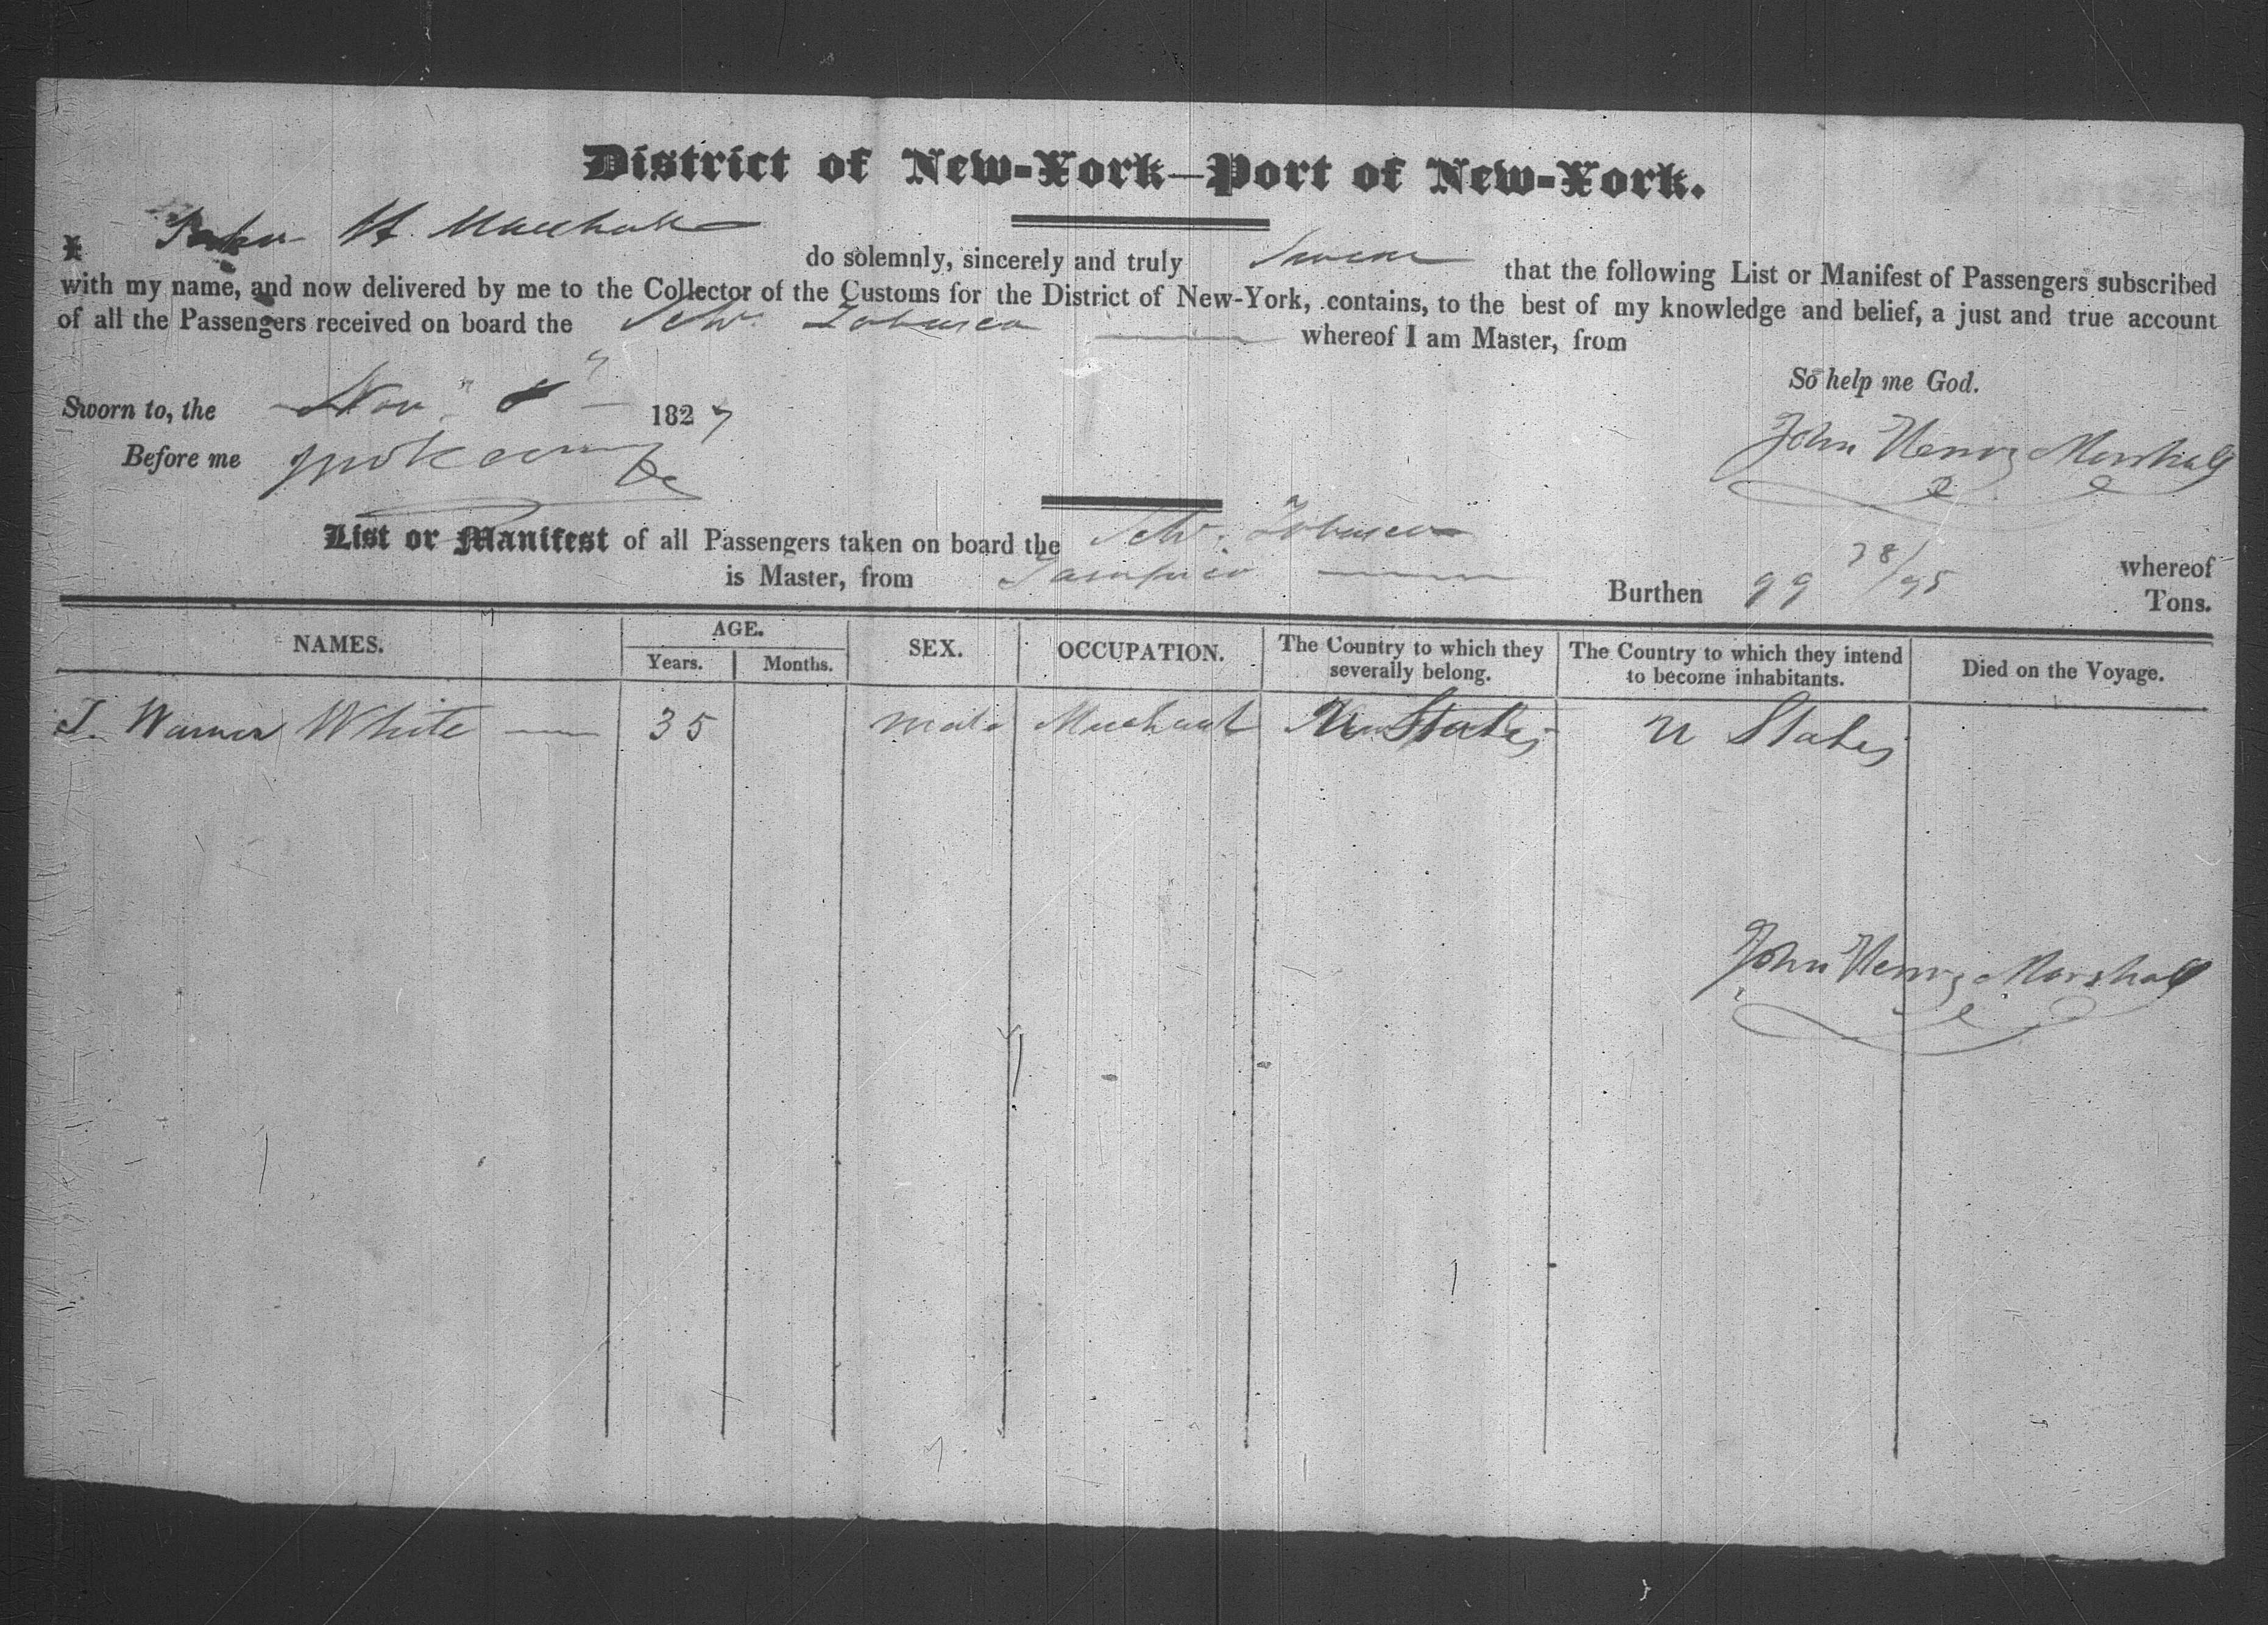 District of New-York—Port of New-York.
I H. Marshall do solemnly, sincerely and truly Swear that the following List or Manifest of Passengers subscribed
with my name, and now delivered by me to the Collector of the Customs for the District of New-York, contains, to the best of my knowledge and belief, a just and true account
of all the Passengers received on board the Schr. Tobasco whereof I am Master, from
So help me God.
Sworn to, the Nov 1827
Before me
John Henry Marshall
List or Manifest of all Passengers taken on board the Schr. Tobasco whereof
is Master, from Tampico Burthen 99 28/95 Tons.
NAMES. AGE. SEX. OCCUPATION. The Country to which they severally belong. The Country to which they intend to become inhabitants. Died on the Voyage.
Years. Months.
J. Warner White 35 male Merchant U States U States
John Henry Marshall